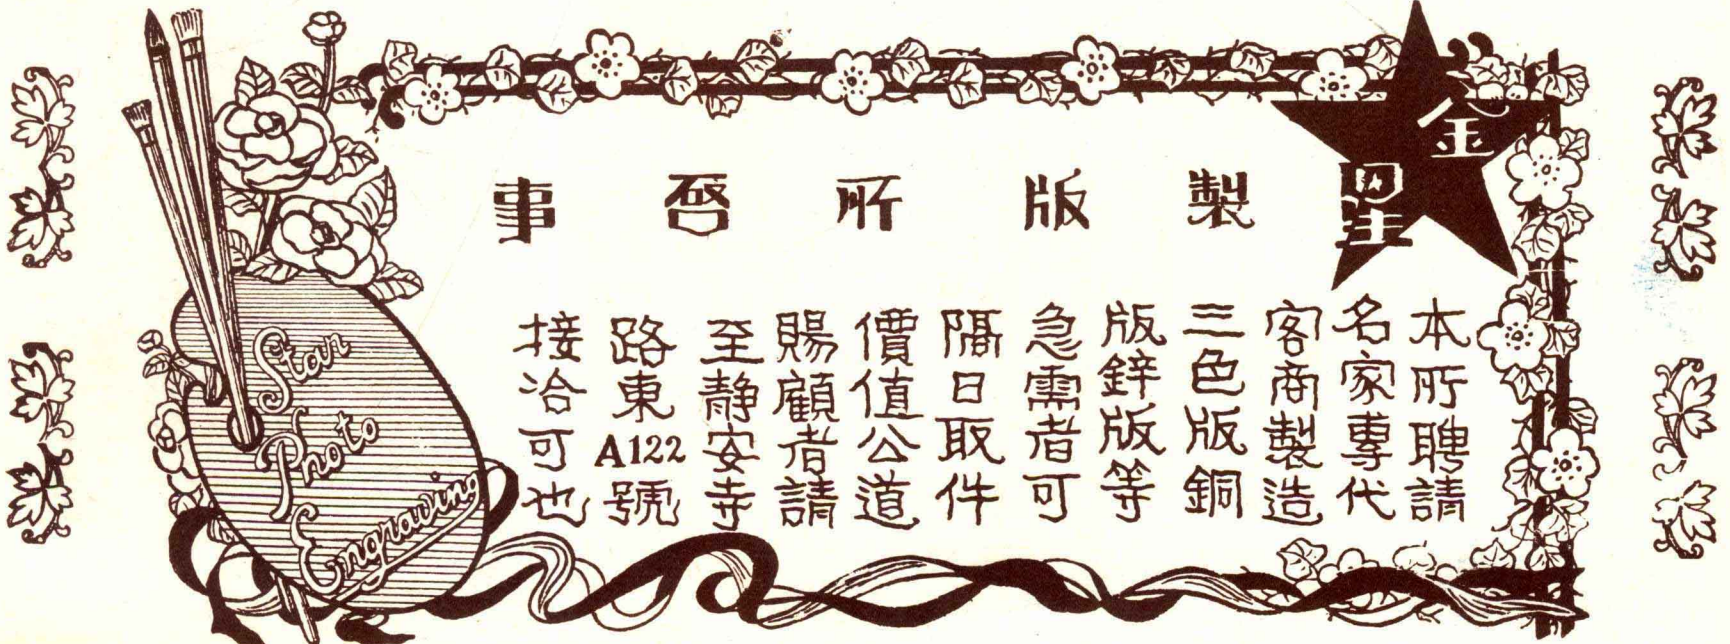 金星
製版所啓事
本所聘請
名家專代
客商製造
三色版銅
版鋅版等
急需者可
隔日取件
價值公道
賜顧者請
至静安寺
路東A122號
接洽可也
Star
Photo
Engraving